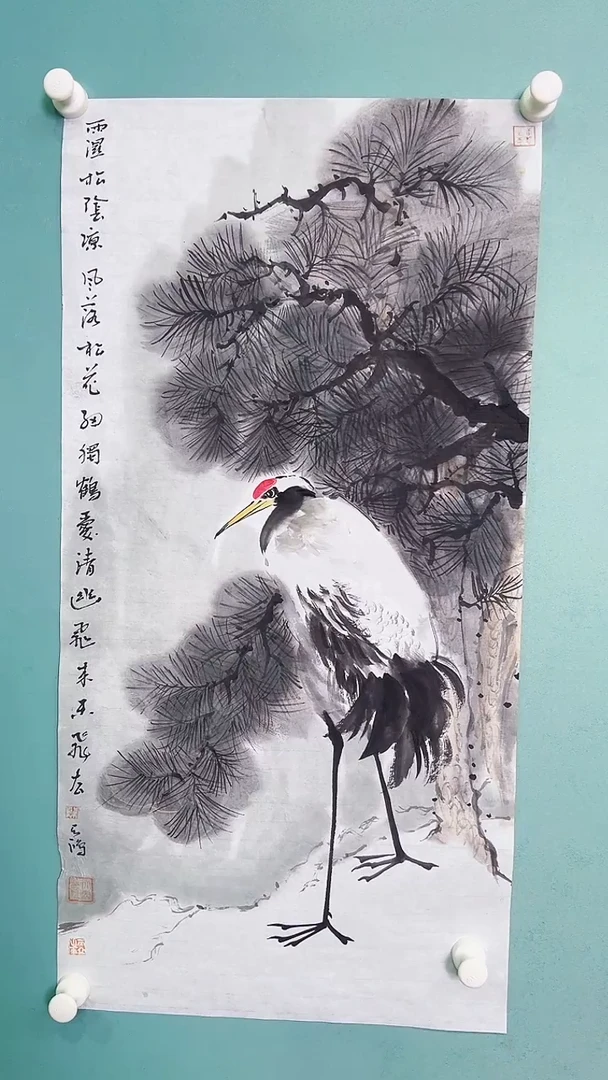 雨濕松陰涼風落松花細獨鶴愛清幽飛來不飛去